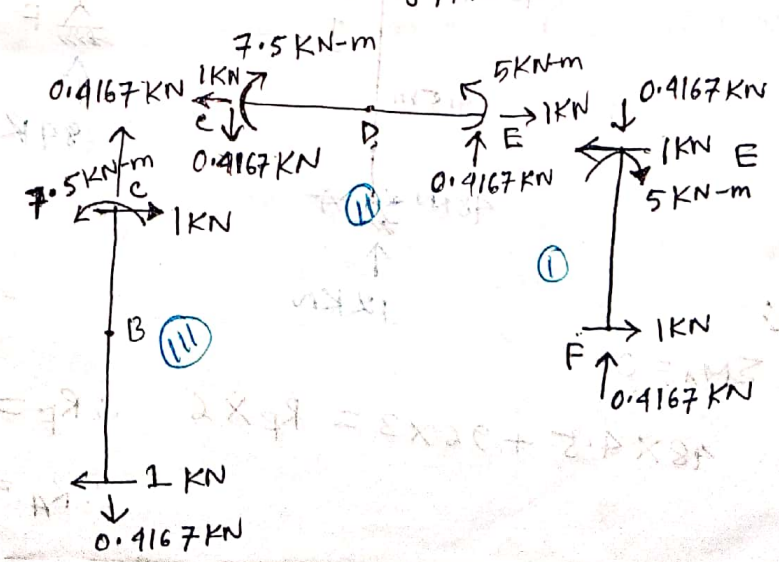 7.5 KN-m
5KN-m
0.4167 KN
1KN
1KN
0.4167 KN
C
D
E
0.4167 KN
0.4167 KN
1KN E
5 KN-m
7.5 KN-m
C
1KN
II
I
B
III
1KN
F
0.4167 KN
1 KN
0.4167 KN